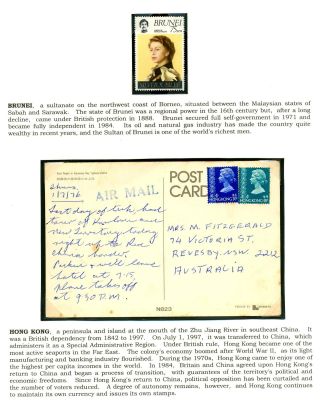 BRUNEI
BRUNEI, a sultanate on the northwest coast of Borneo, situated between the Malaysian states of
Sabah and Sarawak. The state of Brunei was a regional power in the 16th century but, after a long
decline, came under British protection in 1888. Brunei secured full self-government in 1971 and
became fully independent in 1984. Its oil and natural gas industry has made the country quite
wealthy in recent years, and the Sultan of Brunei is one of the world's richest men.
POST
CARD
HONG KONG
HONG KONG
AIR MAIL
1/7/76
Last day of trip had
tour of Kowloon and
New Territory today
right up to Red
China border
hotel at 7.15,
Plane takes off
at 9.30 P.M.
MRS M. FITZGERALD
74 VICTORIA ST.
REVESBY. NSW. 2212
AUSTRALIA
N623
HONG KONG, a peninsula and island at the mouth of the Zhu Jiang River in southeast China. It
was a British dependency from 1842 to 1997. On July 1, 1997, it was transferred to China, which
administers it as a Special Administrative Region. Under British rule, Hong Kong became one of the
most active seaports in the Far East. The colony's economy boomed after World War II, as its light
manufacturing and banking industries flourished. During the 1970s, Hong Kong came to enjoy one of
the highest per capita incomes in the world. In 1984, Britain and China agreed upon Hong Kong's
return to China and began a program of transition, with guarantees of the territory's political and
economic freedoms. Since Hong Kong's return to China, political opposition has been curtailed and
the number of voters reduced. A degree of autonomy remains, however, and Hong Kong continues
to maintain its own currency and issues its own stamps.